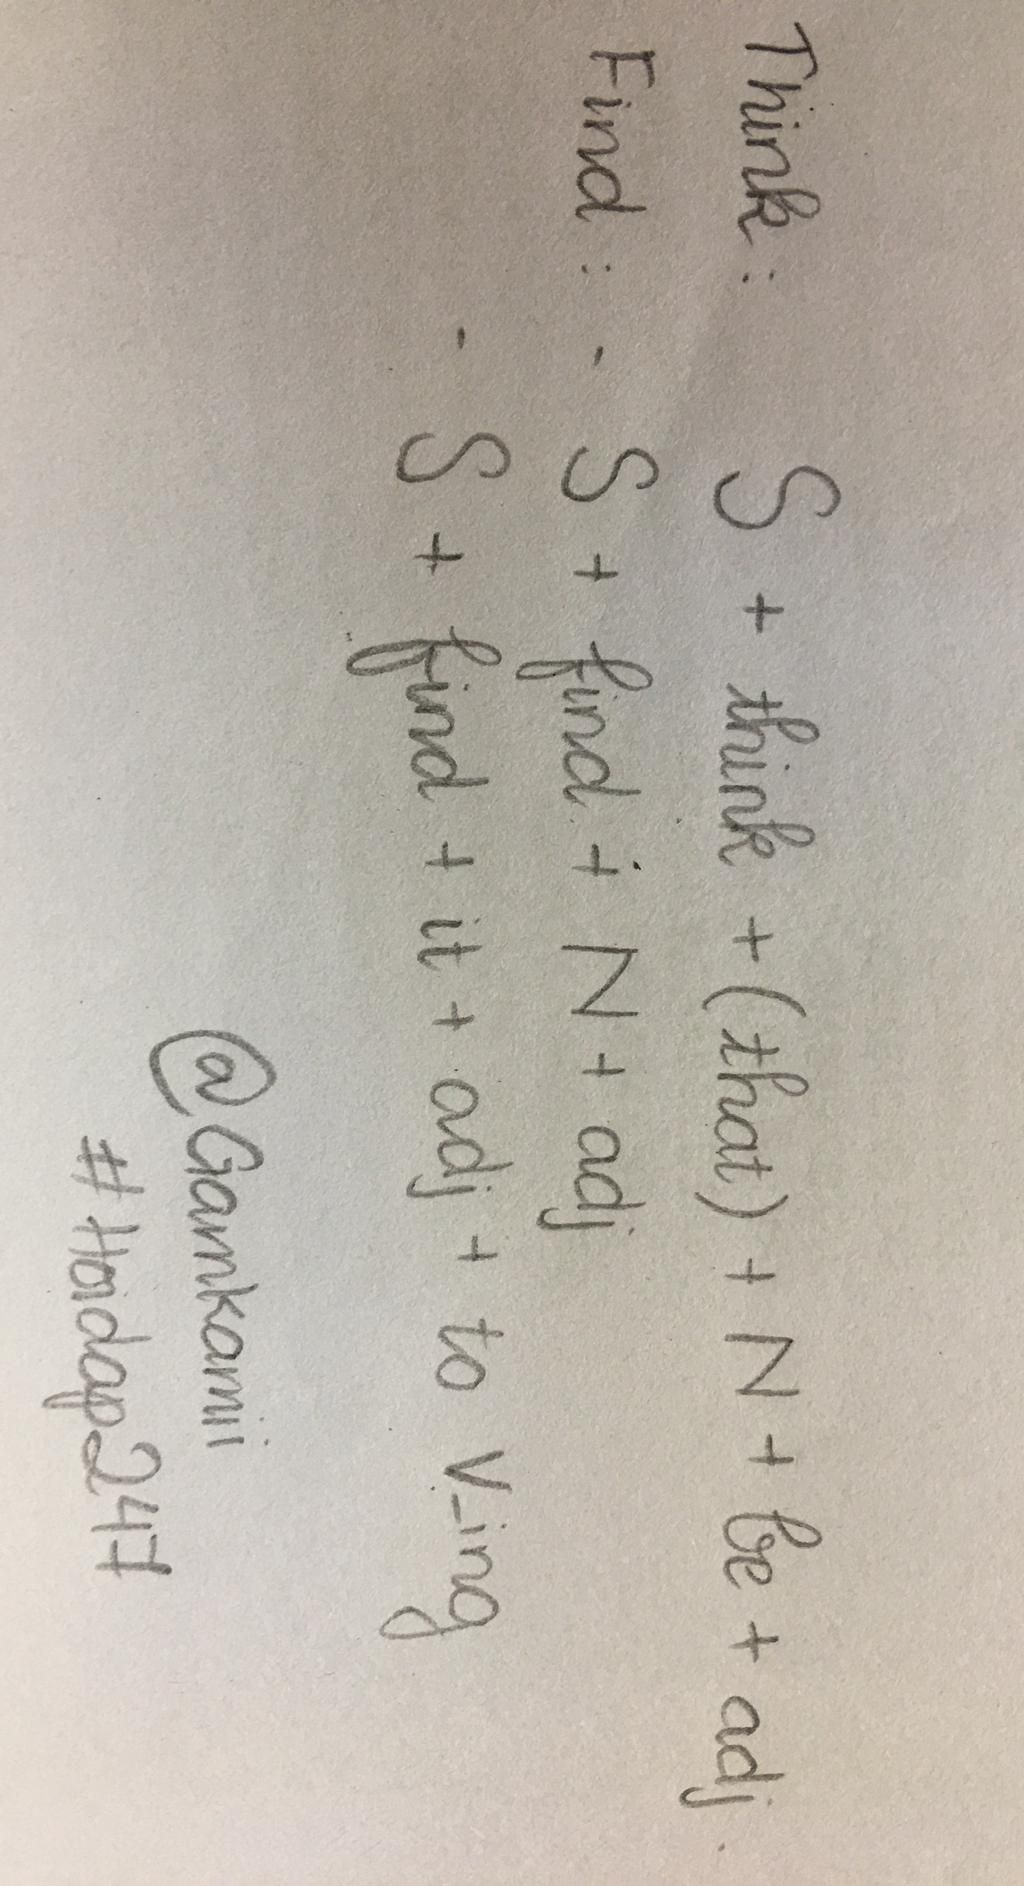 Think: S + think + (that) + N + be + adj.
Find: - S + find + N + adj
- S + find + it + adj + to V_ing
@Gamkamii
#Hoidap247